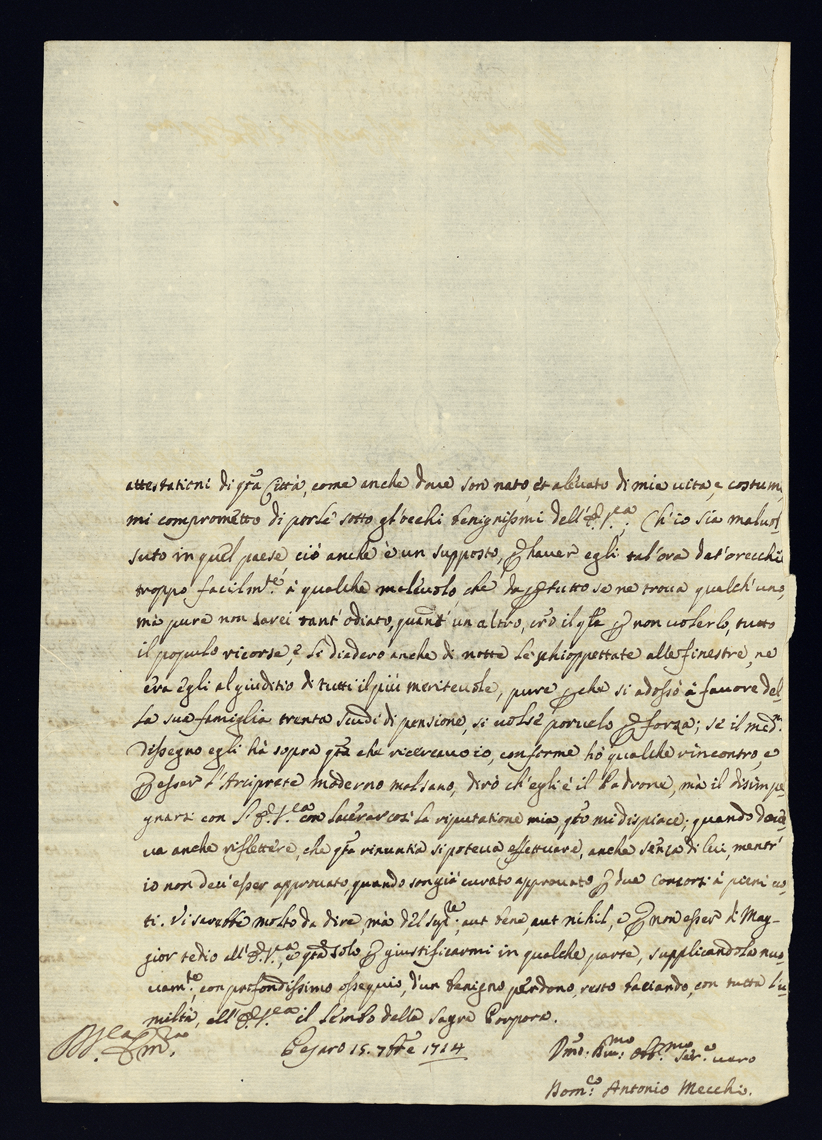 attestationi di qsta Città, come anche dove son nato, et allevato di mia vita, e costumi
mi comprometto di porle sotto gl'occhi benignissimi dell'E. V.ra. Ch'io sia malvos
suto in quel paese ciò anche è un supposto, per haver egli tal'ora dat'orecchi
troppo facilmte à qualche malevolo, che da per tutto se ne trova qualch'uno
mà pure non sarei tant'odiato, quant'un altro, il qle per non volerlo, tutto
il populo ricorse, e le diedero anche di notte le schioppettate alle finestre, ne
era egli al giuditio di tutti il più meritevole, pure perche si adossò à favore del
la sua famiglia trenta scudi di pensione, si volse porvelo per forza; se il medmo
dissegno egli hà sopra qsta che ricercavo io, conforme hò qualche rincontro, e
per esser l'Arciprete moderno malsano, dirò ch'egli è il Padrone, mà il disimpe
gnarsi con l'E. V.ra con lacerar così la riputatione mia, qsto mi dispiace; quando dove
va anche riflettere, che qsta rinuntia si poteva effettuare, anche senza di lui, mentr'
io non dev'esser approvato, quando son già curato approvato per due concorsi à pieni vo
ti. Vi sarebbe molto da dire, mà del supre: aut bene, aut nihil, e per non esser di Mag-
gior tedio all'E. V.ra, è qsta solo per giustificarmi in qualche parte, supplicandola nuo
vamte con profondissimo ossequio, d'un benigno perdono, resto baciando, con tutta l'u
miltà, all'E. V.ra il Lembo della Sagra Porpora.
Pesaro 15. 7bre 1714
Vmo. Dvmo Obbmo Servre vero
Domco Antonio Mecchi.